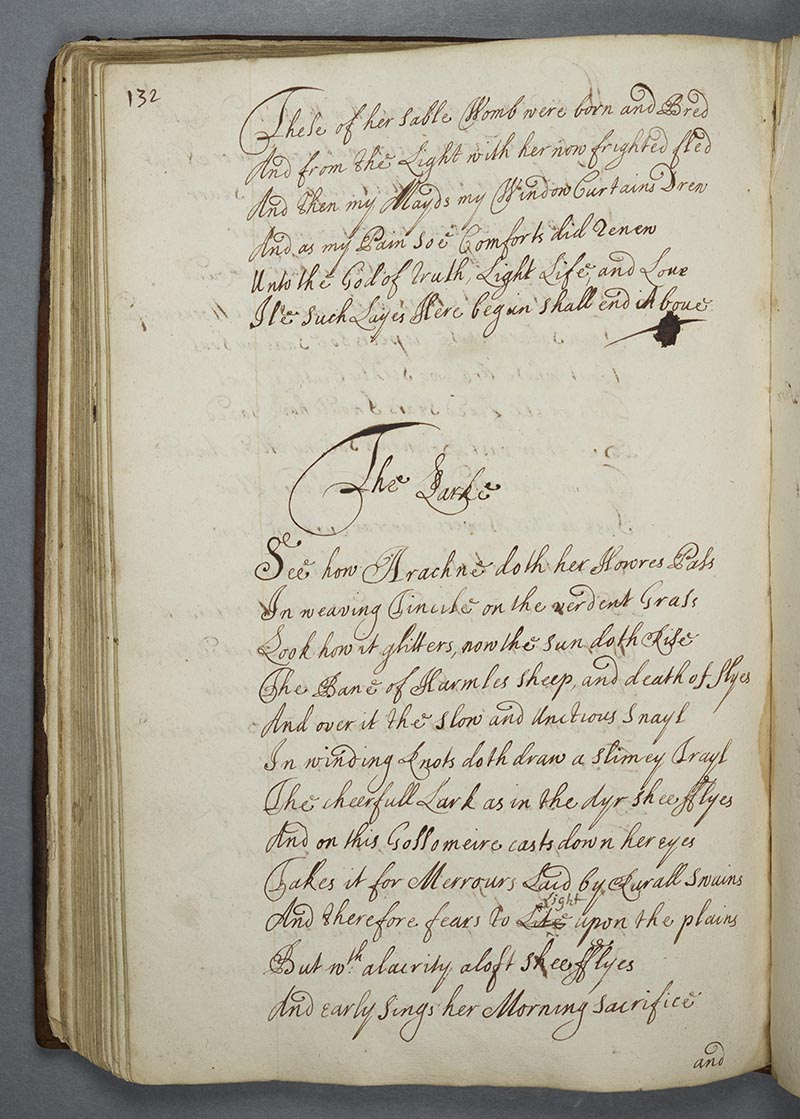 132
These of her sable Womb were born and Bred
And from the Light with her now frighted fled
And then my Mayds my Window Curtains Drew
And as my Pain soe Comforts did Renew
Unto the God of truth, Light Life, and Love
Il'e such Layes Here begin shall end Above
The Larke
See how Arachne doth her Howres Pass
In weaving Tincile on the verdent Grass
Look how it glitters, now the sun doth Rise
The Bane of Harmles sheep, and death of flyes
And over it the slow and Unctious Snayl
In winding knots doth draw a slimey Trayl
The cheerfull Lark as in the Ayr shee fflyes
And on this Gossomeire casts down her eyes
Takes it for Merrours Laid by Rurall Swains
And therefore fears to Lite Light upon the plains
But wth. alacrity aloft shee fflyes
And early sings her Morning sacrifice
and